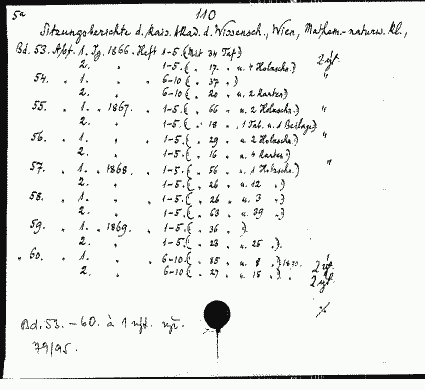 5a 110
Sitzungsberichte d. kais. Akad. d. Wissensch., Wien, Mathem.-naturw. Kl.,
Bd. 53. Abt. 1. Jg. 1866. Heft 1-5. (Mit 34 Taf.)
2. " 1-5. ( " 17. " u. 4 Holzschn.)
54. " 1. " " 6-10 ( " 37 " )
2. " 6-10 ( " 20 " u. 2 Karten)
55. " 1. " 1867. " 1-5. ( " 66 " u. 2 Holzschn.) "
2. " 1-5. ( " 18 " , 1 Tab. u. 1 Beilage)
56. " 1. " " 1-5. ( " 29 " u. 2 Holzschn.) "
2. " 1-5. ( " 16 " u. 4 Karten)
57. " 1. " 1868. " 1-5. ( " 56 " u. 1 Holzschn.) "
2. " 1-5. ( " 26 " u. 12 " )
58. " 1. " " 1-5. ( " 26 " u. 3 " )
2. " 1-5. ( " 63 " u. 39 " )
59. " 1. " 1869. " 1-5. ( " 36 " ).
2. " 1-5. ( " 23 " u. 25 " ).
" 60. " 1. " " 6-10 ( " 85 " u. 8 " )
2. " 6-10 ( " 27 " u. 18 " )
Bd. 53. - 60. à 1
79/95.